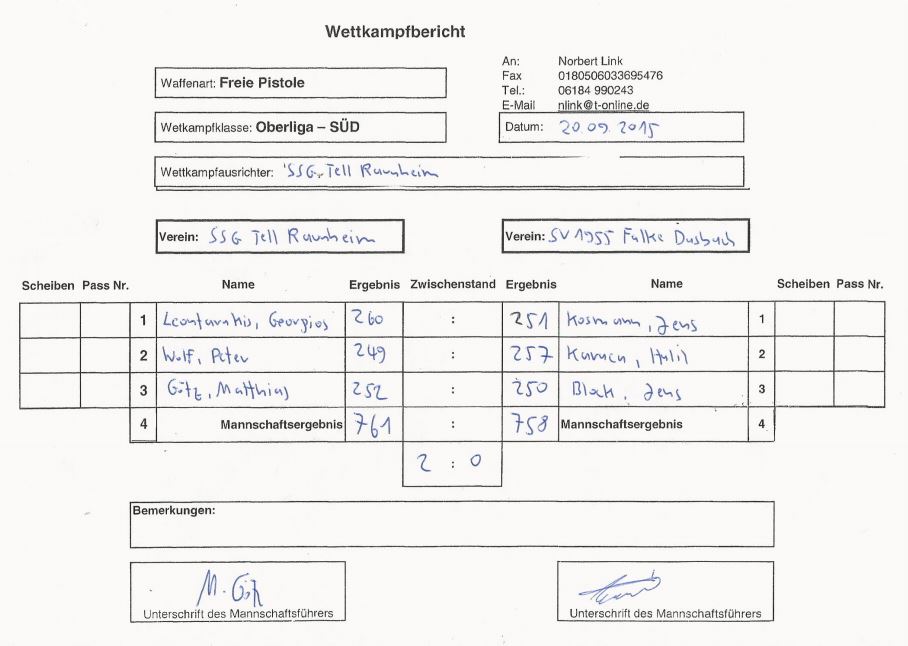 Wettkampfbericht
An: Norbert Link
Waffenart: Freie Pistole
Fax 0180506033695476
Tel.: 06184 990243
E-Mail nlink@t-online.de
Wetkampfklasse: Oberliga – SÜD
Datum: 20.09.2015
Wettkampfausrichter: SSG Tell Raunheim
Verein: SSG Tell Raunheim Verein: SV 1955 Falke Dasbach
Scheiben Pass Nr. Name Ergebnis Zwischenstand Ergebnis Name Scheiben Pass Nr.
1 Leontarakis, Georgios 260 : 251 Kosmann, Jens 1
2 Wolf, Peter 249 : 257 2
3 Götz, Matthias 252 : 250 Block, Jens 3
4 Mannschaftsergebnis 761 : 758 Mannschaftsergebnis 4
2 : 0
Bemerkungen:
M. Götz
Unterschrift des Mannschaftsführers Unterschrift des Mannschaftsführers